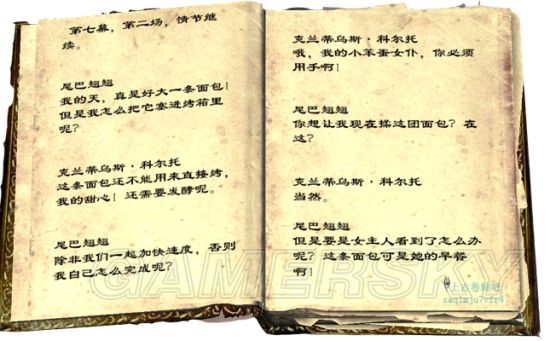 第七幕，第二场，情节继
续。
尾巴翘翘
我的天，真是好大一条面包！
但是我怎么把它塞进烤箱里
呢？
克兰蒂乌斯·科尔托
这条面包还不能用来直接烤，
我的甜心！还需要发酵呢。
尾巴翘翘
除非我们一起加快速度，否则
我自己怎么完成呢？
克兰蒂乌斯·科尔托
哦，我的小笨蛋女仆，你必须
用手啊！
尾巴翘翘
你想让我现在揉这团面包？在
这？
克兰蒂乌斯·科尔托
当然。
尾巴翘翘
但是要是女主人看到了怎么办
呢？这条面包可是她的早餐
啊！
GAMERSKY
上古卷轴吧
zaq1mju7vfr4